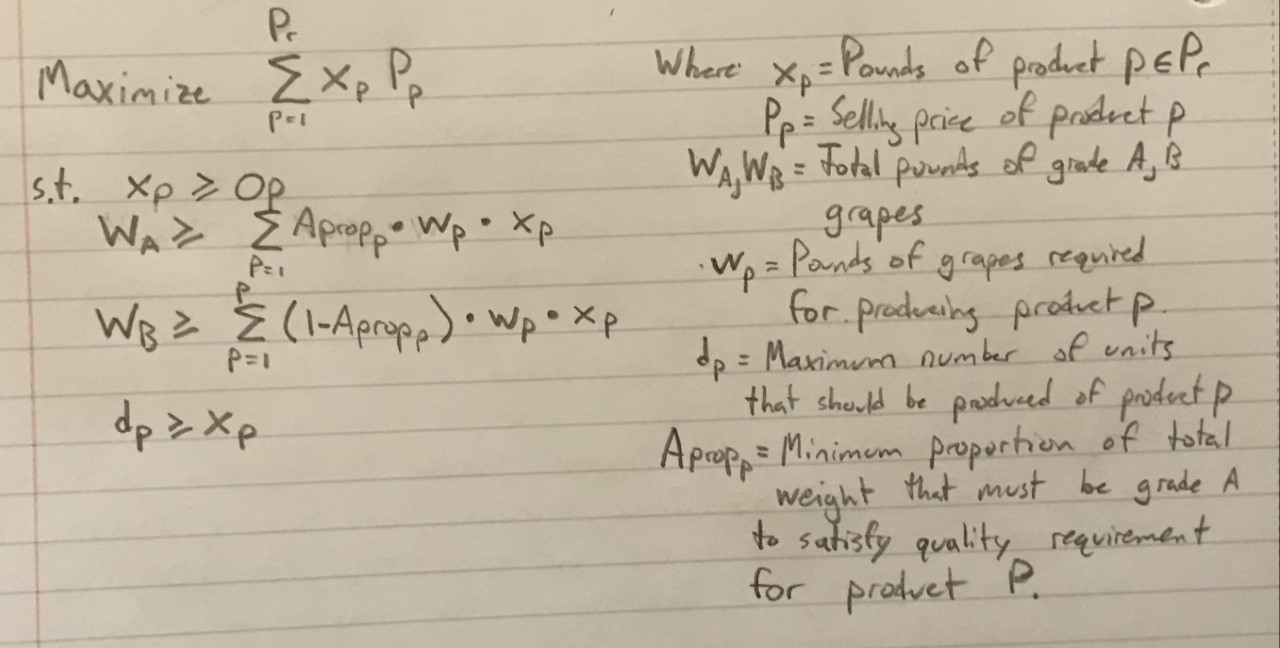 Maximize Pr ∑ p=1 xp Pp
s.t. xp ≥ 0p
WA ≥ ∑ p=1 Apropp • wp • xp
WB ≥ p ∑ p=1 (1-Apropp) • wp • xp
dp ≥ xp
Where: xp = Pounds of product p ∈ Pr
Pp = Selling price of product p
WA, WB = Total pounds of grade A, B
grapes
wp = Pounds of grapes required
for producing product p.
dp = Maximum number of units
that should be produced of product p
Apropp = Minimum proportion of total
weight that must be grade A
to satisfy quality requirement
for product P.